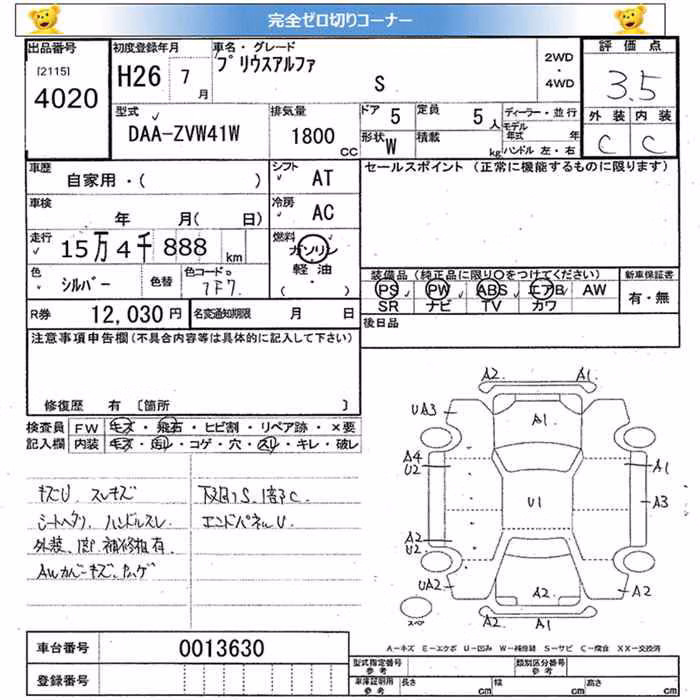 完全ゼロ切りコーナー
出品番号 初度登録年月 車名・グレード 評価点
[2115] 4020 H26 7月 プリウスアルファ S 2WD・4WD 3.5
型式 排気量 ドア 5 定員 5人 ディーラー・並行 外装 内装
DAA-ZVW41W 1800cc 形状 W 積載 kg モデル年式 年 ハンドル 左・右 C C
車歴 自家用・( ) シフト AT セールスポイント (正常に機能するものに限ります)
車検 年 月( 日) 冷房 AC
走行 15万4千888km 燃料 ガソリン 軽油 ・( )
色 シルバー 色替 色コードNo 1F7 装備品 (純正品に限り○をつけてください) 新車保証書
PS PW ABS エアB AW 有・無
SR ナビ TV カワ
R券 12,030円 名変通知期限 月 日 後日品
注意事項申告欄(不具合内容等は具体的に記入して下さい)
修復歴 有 〔箇所 〕
検査員 FW キズ・飛石・ヒビ割・リペア跡・×要
記入欄 内装 キズ・汚レ・コゲ・穴・スレ・キレ・破レ
キズU スレキズ
シートヘタリ、ハンドルスレ
エンドパネルU
外装、補修粗有
AWカバーキズ、ハゲ
A2 A1
UA3 A1
A4 U2 A1
U1 A3
A2 U2
UA2 A2 A2
スペア A2 A1
A-キズ E-エクボ U-凹み W-補修跡 S-サビ C-腐食 XX-交換済
車台番号 0013630
登録番号
型式指定番号 参考 類別区分番号 参考
車庫証明用 参考 長さ cm 幅 cm 高さ cm